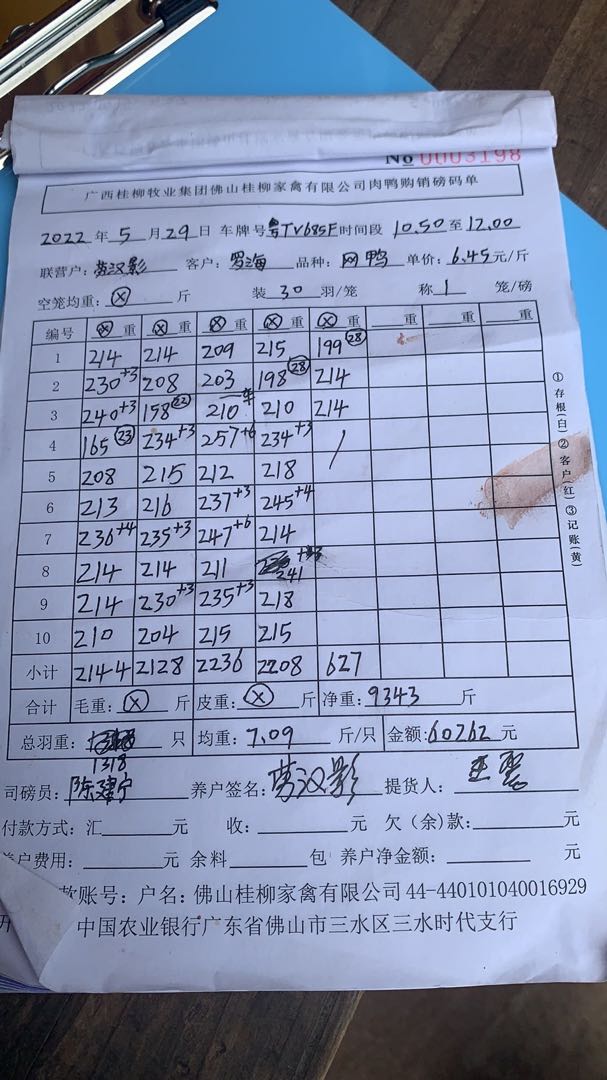 No 0003198
广西桂柳牧业集团佛山桂柳家禽有限公司肉鸭购销磅码单
2022 年 5 月 29 日 车牌号 粤TV685F 时间段 10.50 至 12.00
联营户: 劳汉影 客户: 罗海 品种: 网鸭 单价: 6.45 元/斤
空笼均重: ⓧ 斤 装 30 羽/笼 称 1 笼/磅
编号 ⓧ 重 ⓧ 重 ⓧ 重 ⓧ 重 ⓧ 重 重 重 重
1 214 214 209 215 199 ㉘
2 230+3 208 203 198 ㉘ 214
3 240+3 158 ㉒ 210 一车 210 214
4 165 ㉓ 234+3 257+6 234+3 /
5 208 215 212 218
6 213 216 237+3 245+4
7 236+4 235+3 247+6 214
8 214 214 211 241
9 214 230+3 235+3 218
10 210 204 215 215
小计 2144 2128 2236 2208 627
合计 毛重: ⓧ 斤 皮重: ⓧ 斤 净重: 9343 斤
总羽重: 1318 只 均重: 7.09 斤/只 金额: 60262 元
司磅员: 陈建宁 养户签名: 劳汉影 提货人:
付款方式: 汇 元 收: 元 欠(余)款: 元
养户费用: 元 余料 包 养户净金额: 元
款账号: 户名: 佛山桂柳家禽有限公司 44-440101040016929
开 中国农业银行广东省佛山市三水区三水时代支行
①存根(白)②客户(红)③记账(黄)